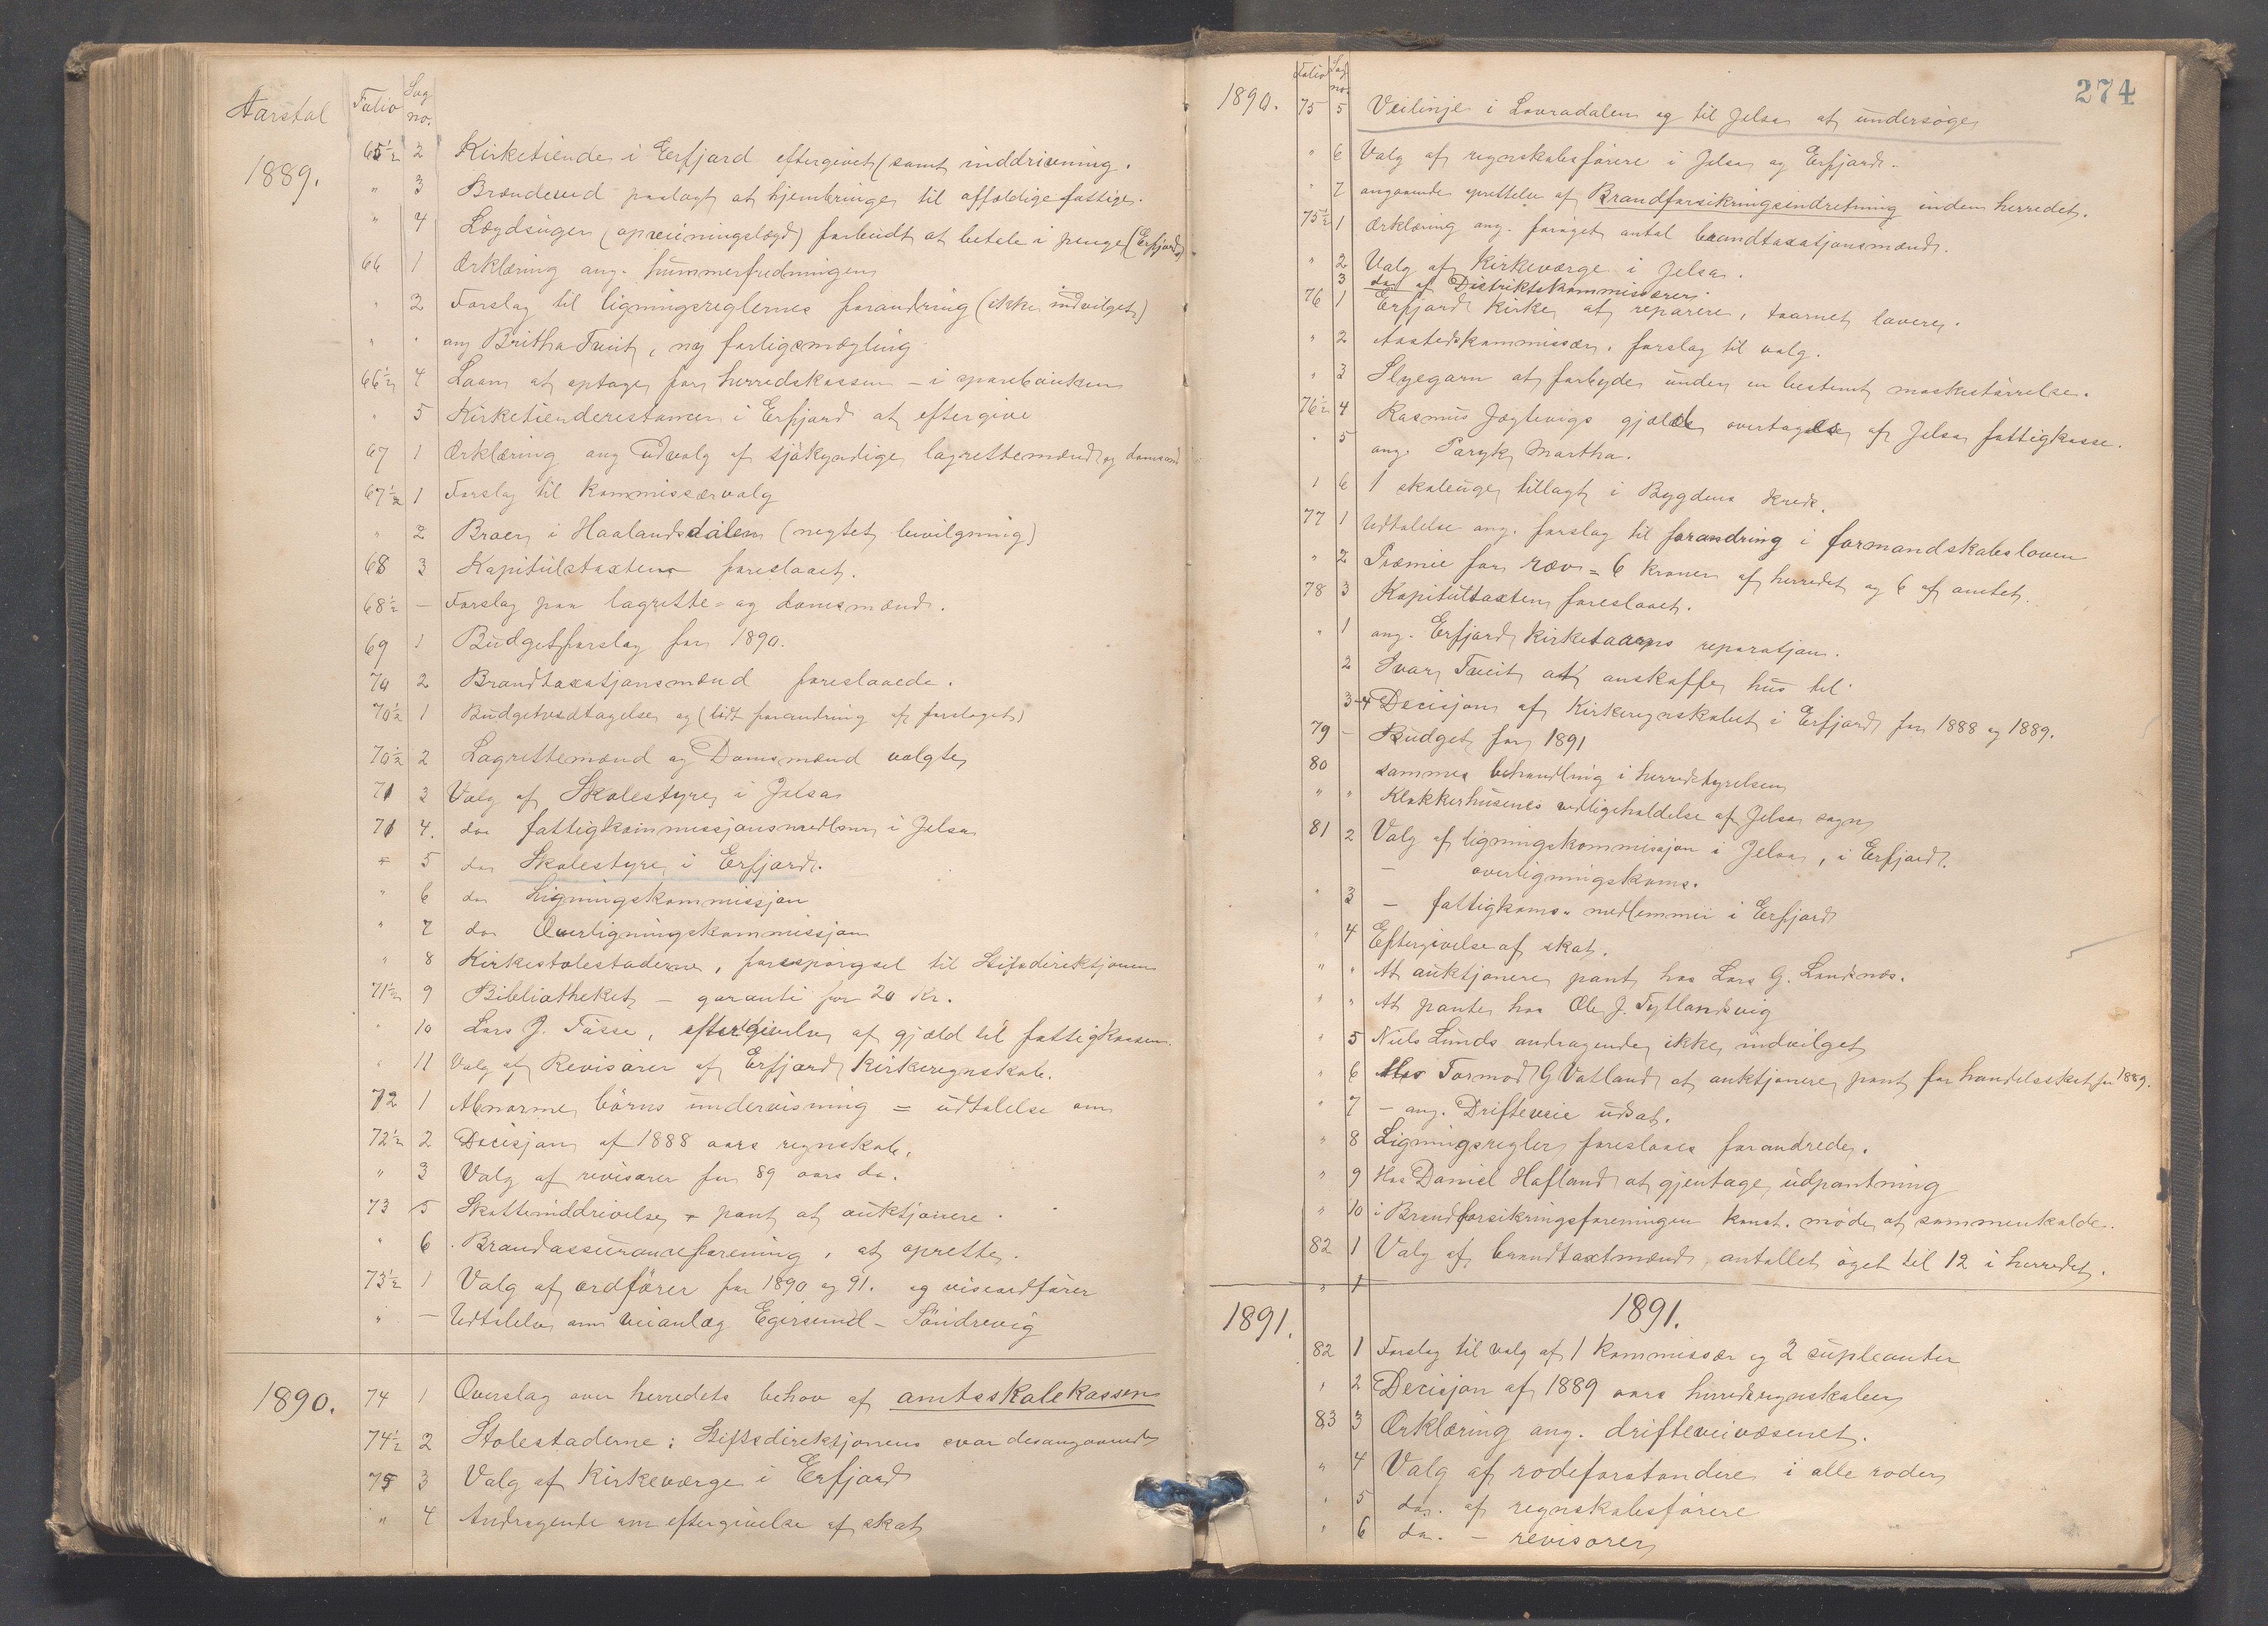 Aarstal Folio Sag no.
1889. 65½ 2 Kirketiende i Erfjord eftergivet (samt inddrivning.
" 3 Brændeved paalagt at hjembringe til affældige fattige.
" 4 Lægdsuger (opreiningslægd) forbudt at betale i penge (Erfjord)
66 1 Ærklæring ang. hummerfredningen
" 2 Forslag til ligningsreglernes forandring (ikke indvilget)
" " ang Britha Tveit, ny forligsmægling
66½ 4 Laan at optage for herredskassen - i sparebanken
" 5 Kirketienderestancer i Erfjord at eftergive
67 1 Ærklæring ang Udvalg af sjökyndige lagrettemænd og domsmænd
67½ 1 Forslag til kommissærvalg
" 2 Broer i Haalandsdalen (negtet bevilgning)
68 3 Kapitulstaxten foreslaaet.
68½ — Forslag paa lagrette- og domsmænd.
69 1 Budgetforslag for 1890.
70 2 Brandtaxatjonsmænd foreslaaede.
70½ 1 Budgetvedtagelse og (lidt forandring af forslaget)
70½ 2 Lagrettemænd og Domsmænd valgte
71 3 Valg af Skolestyre i Jelsa
71 4. do fattigkommissjonsmedlem i Jelsa
" 5 do Skolestyre i Erfjord.
" 6 do Ligningskommissjon
" 7 do Overligningskommissjon
" 8 Kirkestolestaderne, forespørgsel til Stiftsdirektjonen
71½ 9 Bibliotheket - garanti for 20 Kr.
" 10 Lars J. Tösse, eftergivelse af gjæld til fattigkassen.
" 11 Valg af Revisorer af Erfjord Kirkeregnskab.
72 1 Abnorme børns undervisning = udtalelse om
72½ 2 Decisjon af 1888 aars regnskab.
" 3 Valg af revisorer for 89 aars do.
73 5 Skatteinddrivelse - pant at auktjonere.
" 6 Brandassuranceforening, at oprette.
73½ 1 Valg af ordfører for 1890 og 91. og viseordfører
" — Udtalelse om veianlæg Egersund - Söndrevig
1890. 74 1 Overslag over herredets behov af amtsskolekassen
74½ 2 Stolestaderne: Stiftsdirektjonens svar desangaaende
75 3 Valg af Kirkeværge i Erfjord
" 4 Andragende om eftergivelse af skat
Folio Sag no. 274
1890. 75 5 Veilinje i Lovradalen og til Jelsa at undersøge
" 6 Valg af regnskabsførere i Jelsa og Erfjord.
" 7 angaaende oprettelse af Brandforsikringsindretning inden herredet.
75½ 1 Ærklæring ang. forøget antal brandtaxatjonsmænd.
" 2 Valg af Kirkeværge i Jelsa.
3 do af Distriktskommissærer
76 1 Erfjord Kirke at reparere, taarnet lavere.
" 2 Aastedskommissær, forslag til valg.
" 3 Slyegarn at forbyde under en bestemt maskestørrelse.
76½ 4 Rasmus Jægtevigs gjæld overtages af Jelsa fattigkasse.
" 5 ang. Paryk Martha.
" 6 1 skoleuge tillagt i Bygdens Kreds.
77 1 Udtalelse ang. forslag til forandring i formandskabsloven
" 2 Præmie for ræv = 6 kroner af herredet og 6 af amtet.
78 3 Kapitulstaxten foreslaaet.
" 1 ang. Erfjord Kirketaarns reparatjon.
2 Ivar Tveit at anskaffe hus til
3-4 Decisjon af Kirkeregnskabet i Erfjord for 1888 og 1889.
79 — Budget for 1891
80 sammes behandling i herredstyrelsen
" " Klokkerhusenes vedligeholdelse af Jelsa sogn
81 2 Valg af ligningskommissjon i Jelsa, i Erfjord.
— overligningskoms.
" 3 — fattigkoms. medlemmer i Erfjord
" 4 Eftergivelse af skat.
" " At auktjonere pant hos Lars G. Landsnæs.
" " At pante hos Ole J. Tytlandsvig
" 5 Niels Lunds andragende ikke indvilget
" 6 Hos Tormod G Vatland at auktjonere pant for handelsskat for 1889.
" 7 — ang. Drifteveie udsat.
" 8 Ligningsregler foreslaaes forandrede.
" 9 Hos Daniel Hafland at gjentage udpantning
" 10 i Brandforsikringsforeningen konst. møde at sammenkalde.
82 1 Valg af brandtaxtmænd antallet øget til 12 i herredet.
" 1
1891. 1891.
82 1 Forslag til valg af 1 kommissær og 2 supleanter
" 2 Decisjon af 1889 aars herredsregnskaber
83 3 Ærklæring ang. drifteveivæsenet.
" 4 Valg af rodeforstandere i alle roder
" 5 do. af regnskabsførere
" 6 do. — revisorer